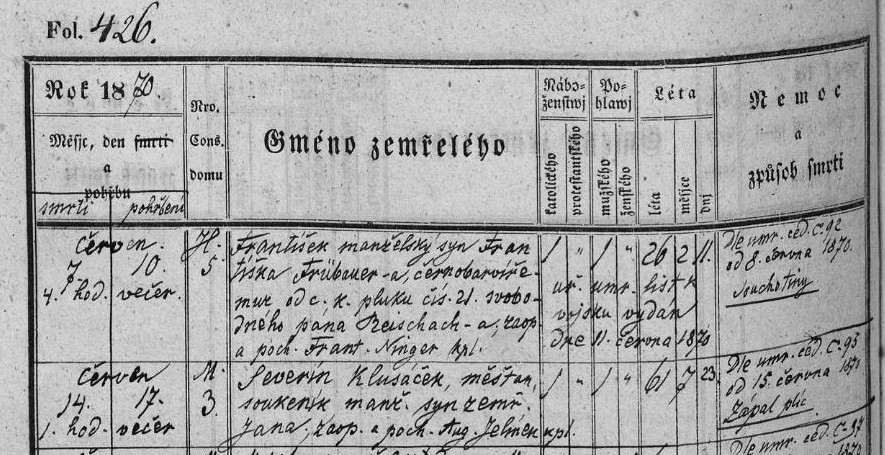 Fol. 426.
Rok 1870.
Měsjc, den smrti
a
pohřbu
smrti pohřbení
Nro.
Cons.
domu
Gméno zemřelého
Nábo-
ženstwj
katolického
protestantského
Po-
hlawj
mužského
ženského
Léta
léta
měsjce
dnj
Nemoc
a
způsob smrti
Červen H. František manželský syn Fran 1 " 1 " 26 2 11. Dle umr. céd. č. 92
7 10. 5 tiška Frübauer-a, černobarvíře- uř. umr. list k od 8. června 1870.
4. hod. večer. muž od c. k. pluku čís. 21. svobo- vojsku vydán Souchotiny
dného pána Reischach-a; zaop. dne 11. června 1870
a poch. Frant. Ninger kpl.
Červen M. Severin Klusáček, měšťan, 1 " 1 " 61 7 23. Dle umr. céd. č. 95
14. 17. 3. soukeník manž. syn zemř. od 15. června 1870
1. hod. večer Jana; zaop. a poch. Aug. Jelínek kpl. Zápal plic.
Dle umr. céd. č. 97
1870